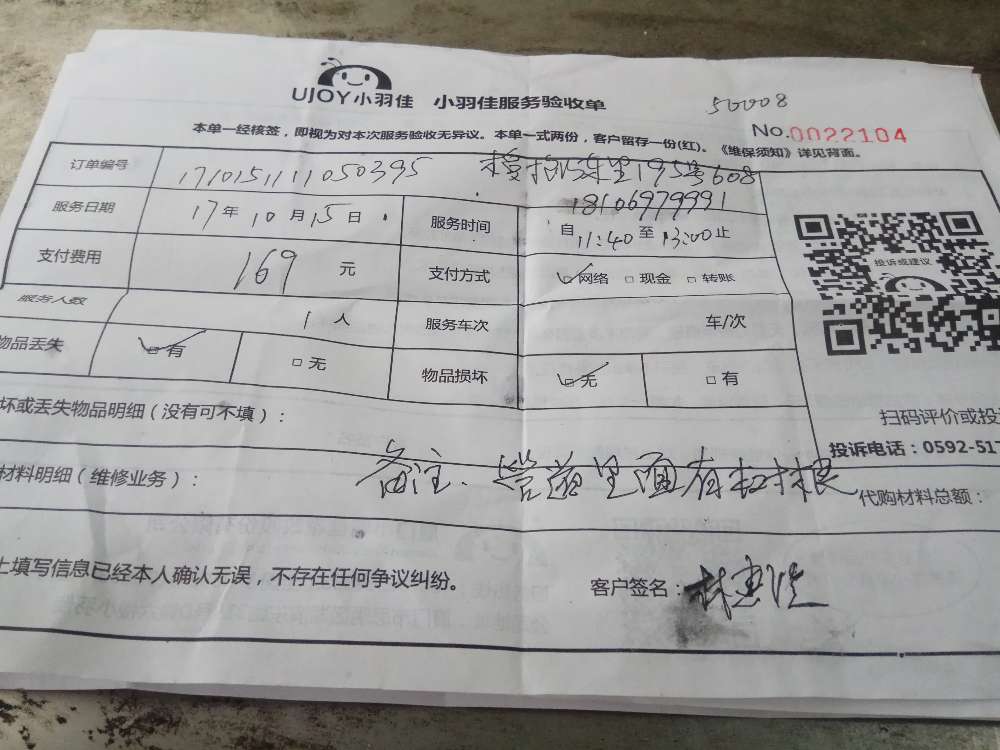 UJOY小羽佳 小羽佳服务验收单
50008
No.0022104
本单一经核签，即视为对本次服务验收无异议。本单一式两份，客户留存一份(红)。《维保须知》详见背面。
订单编号 171015111050395 里195号608
18106979991
服务日期 17年10月15日. 服务时间 自11:40至13:00止
支付费用 169元 支付方式 ☑网络 □现金 □转账
服务人数 1人 服务车次 车/次
物品丢失 ☑有 □无 物品损坏 ☑无 □有
投诉或建议
扫码评价或投
投诉电话：0592-51
坏或丢失物品明细（没有可不填）：
材料明细（维修业务）： 备注、管道里面有树根 代购材料总额：
上填写信息已经本人确认无误，不存在任何争议纠纷。 客户签名：林惠